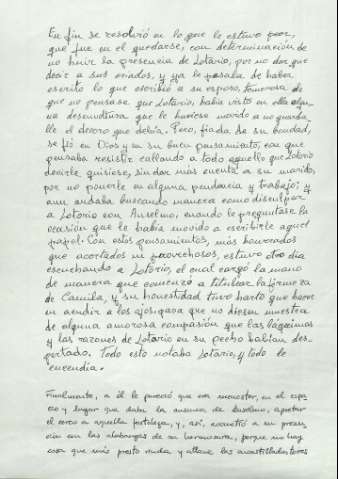 En fin se resolvió en lo que le estuvo peor,
que fue en el quedarse, con determinación de
no huir la presencia de Lotario, por no dar que
decir a sus criados, y ya le pesaba de haber
escrito lo que escribió a su esposo, temerosa de
que no pensase que Lotario había visto en ella algu-
na desenvoltura que le hubiese movido a no guarda-
lle el decoro que debía. Pero, fiada de su bondad,
se fió en Dios y en su buen pensamiento, con que
pensaba resistir callando a todo aquello que Lotario
decirle quisiese, sin dar más cuenta a su marido,
por no ponerle en alguna pendencia y trabajo; y
aun andaba buscando manera como disculpar
a Lotario con Anselmo, cuando le preguntase la
ocasión que le había movido a escribirle aquel
papel. Con estos pensamientos, más honrados
que acertados ni provechosos, estuvo otro día
escuchando a Lotario, el cual cargó la mano
de manera que comenzó a titubear la firmeza
de Camila, y su honestidad tuvo harto que hacer
en acudir a los ojos, para que no diesen muestra
de alguna amorosa compasión que las lágrimas
y las razones de Lotario en su pecho habían des-
pertado. Todo esto notaba Lotario, y todo le
encendía.
Finalmente, a él le pareció que era menester, en el espa-
cio y lugar que daba la ausencia de Anselmo, apretar
el cerco a aquella fortaleza, y, así, acometió a su presun-
ción con las alabanzas de su hermosura, porque no hay
cosa que más presto rinda y allane las encastilladas torres